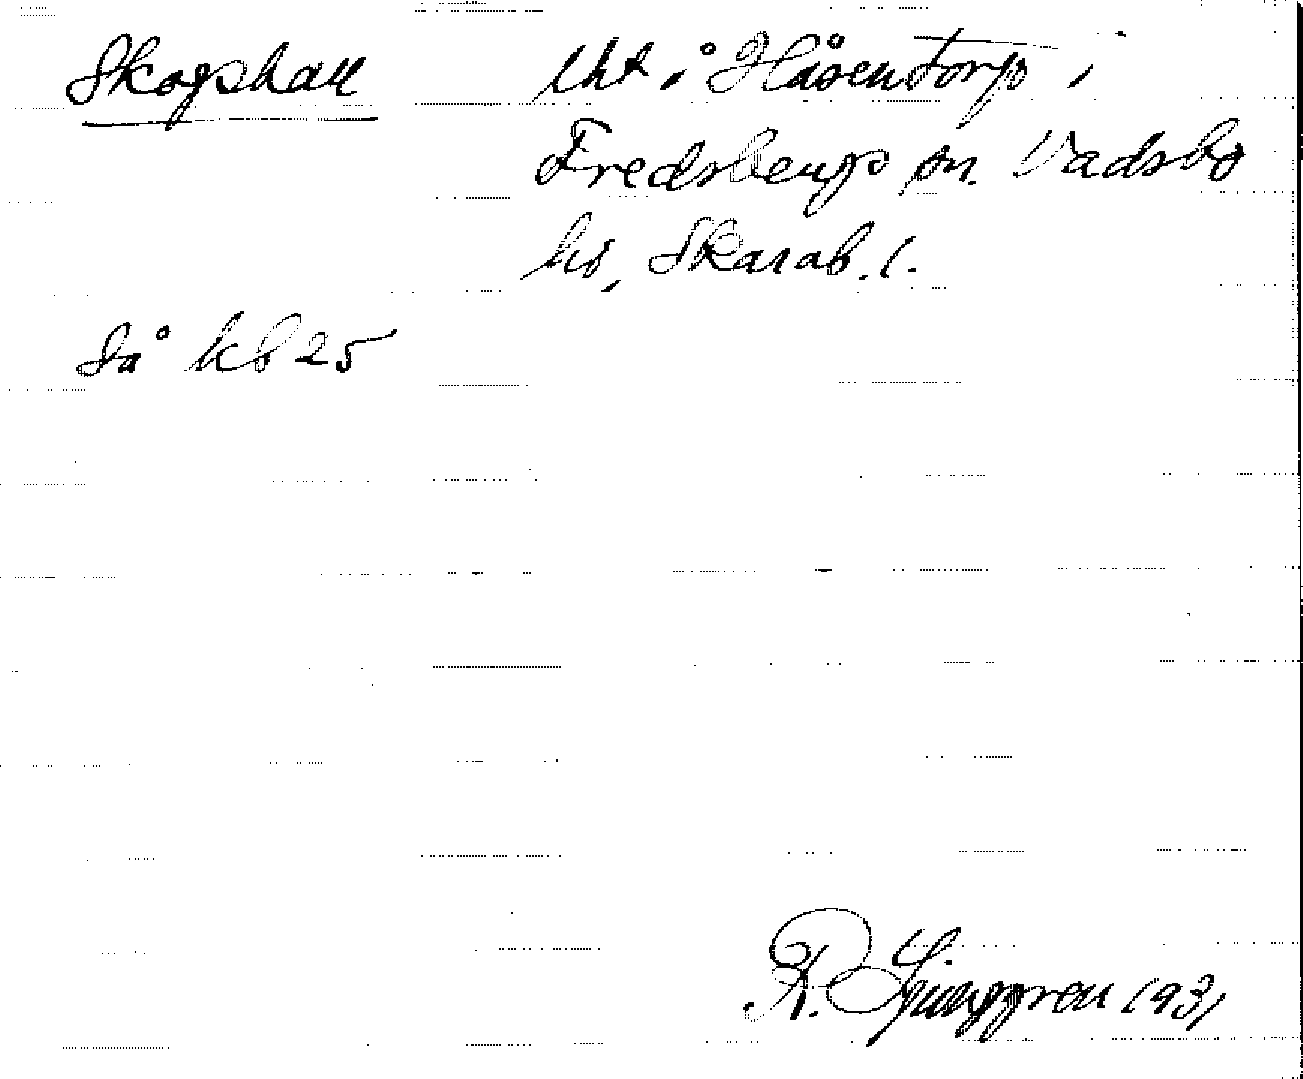 Skogshall lht i Håsentorp i
Fredsbergs sn. Vadsbo
hd, Skarab. l.
Så kb 25
R. Ljunggren 1931